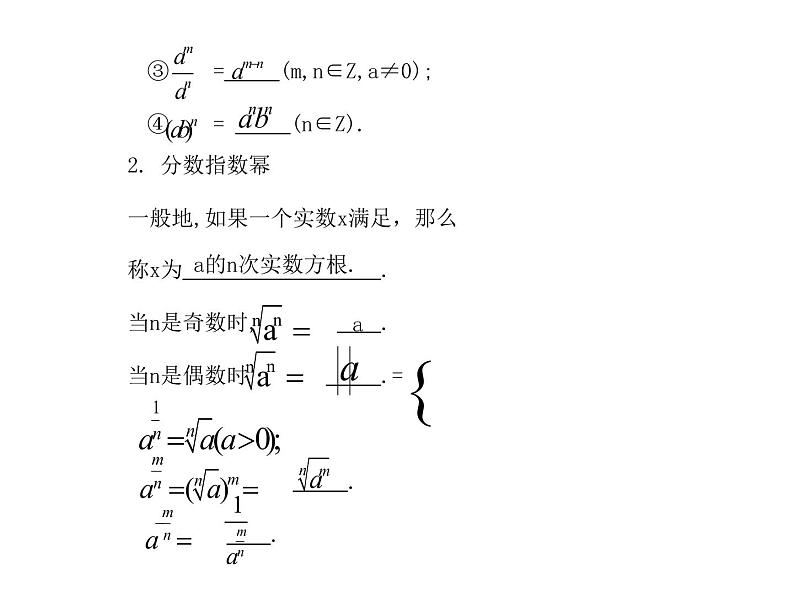 ③ a^m/a^n = a^{m-n} (m,n∈Z,a≠0);
④(ab)^n = a^n b^n (n∈Z).
2. 分数指数幂
一般地,如果一个实数x满足，那么
称x为 a的n次实数方根. .
当n是奇数时 ⁿ√(aⁿ) = a .
当n是偶数时 ⁿ√(aⁿ) = |a| .={
a^{1/n} = ⁿ√a (a>0);
a^{m/n} = (ⁿ√a)^m = ⁿ√(a^m) .
a^{-m/n} = 1/a^{m/n} .